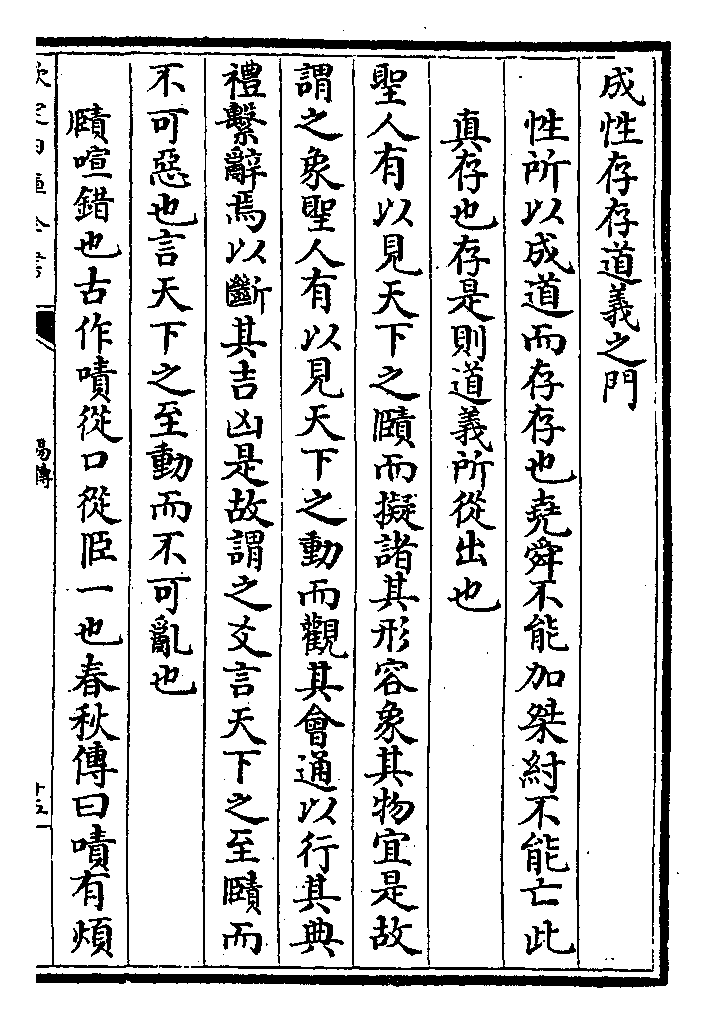 成性存存道義之門
性所以成道而存存也堯舜不能加桀紂不能亡此
真存也存是則道義所從出也
聖人有以見天下之賾而擬諸其形容象其物宜是故
謂之象聖人有以見天下之動而觀其會通以行其典
禮繫辭焉以斷其吉凶是故謂之爻言天下之至賾而
不可惡也言天下之至動而不可亂也
賾喧錯也古作嘖從口從𦣞一也春秋傳曰嘖有煩
易傳
十五